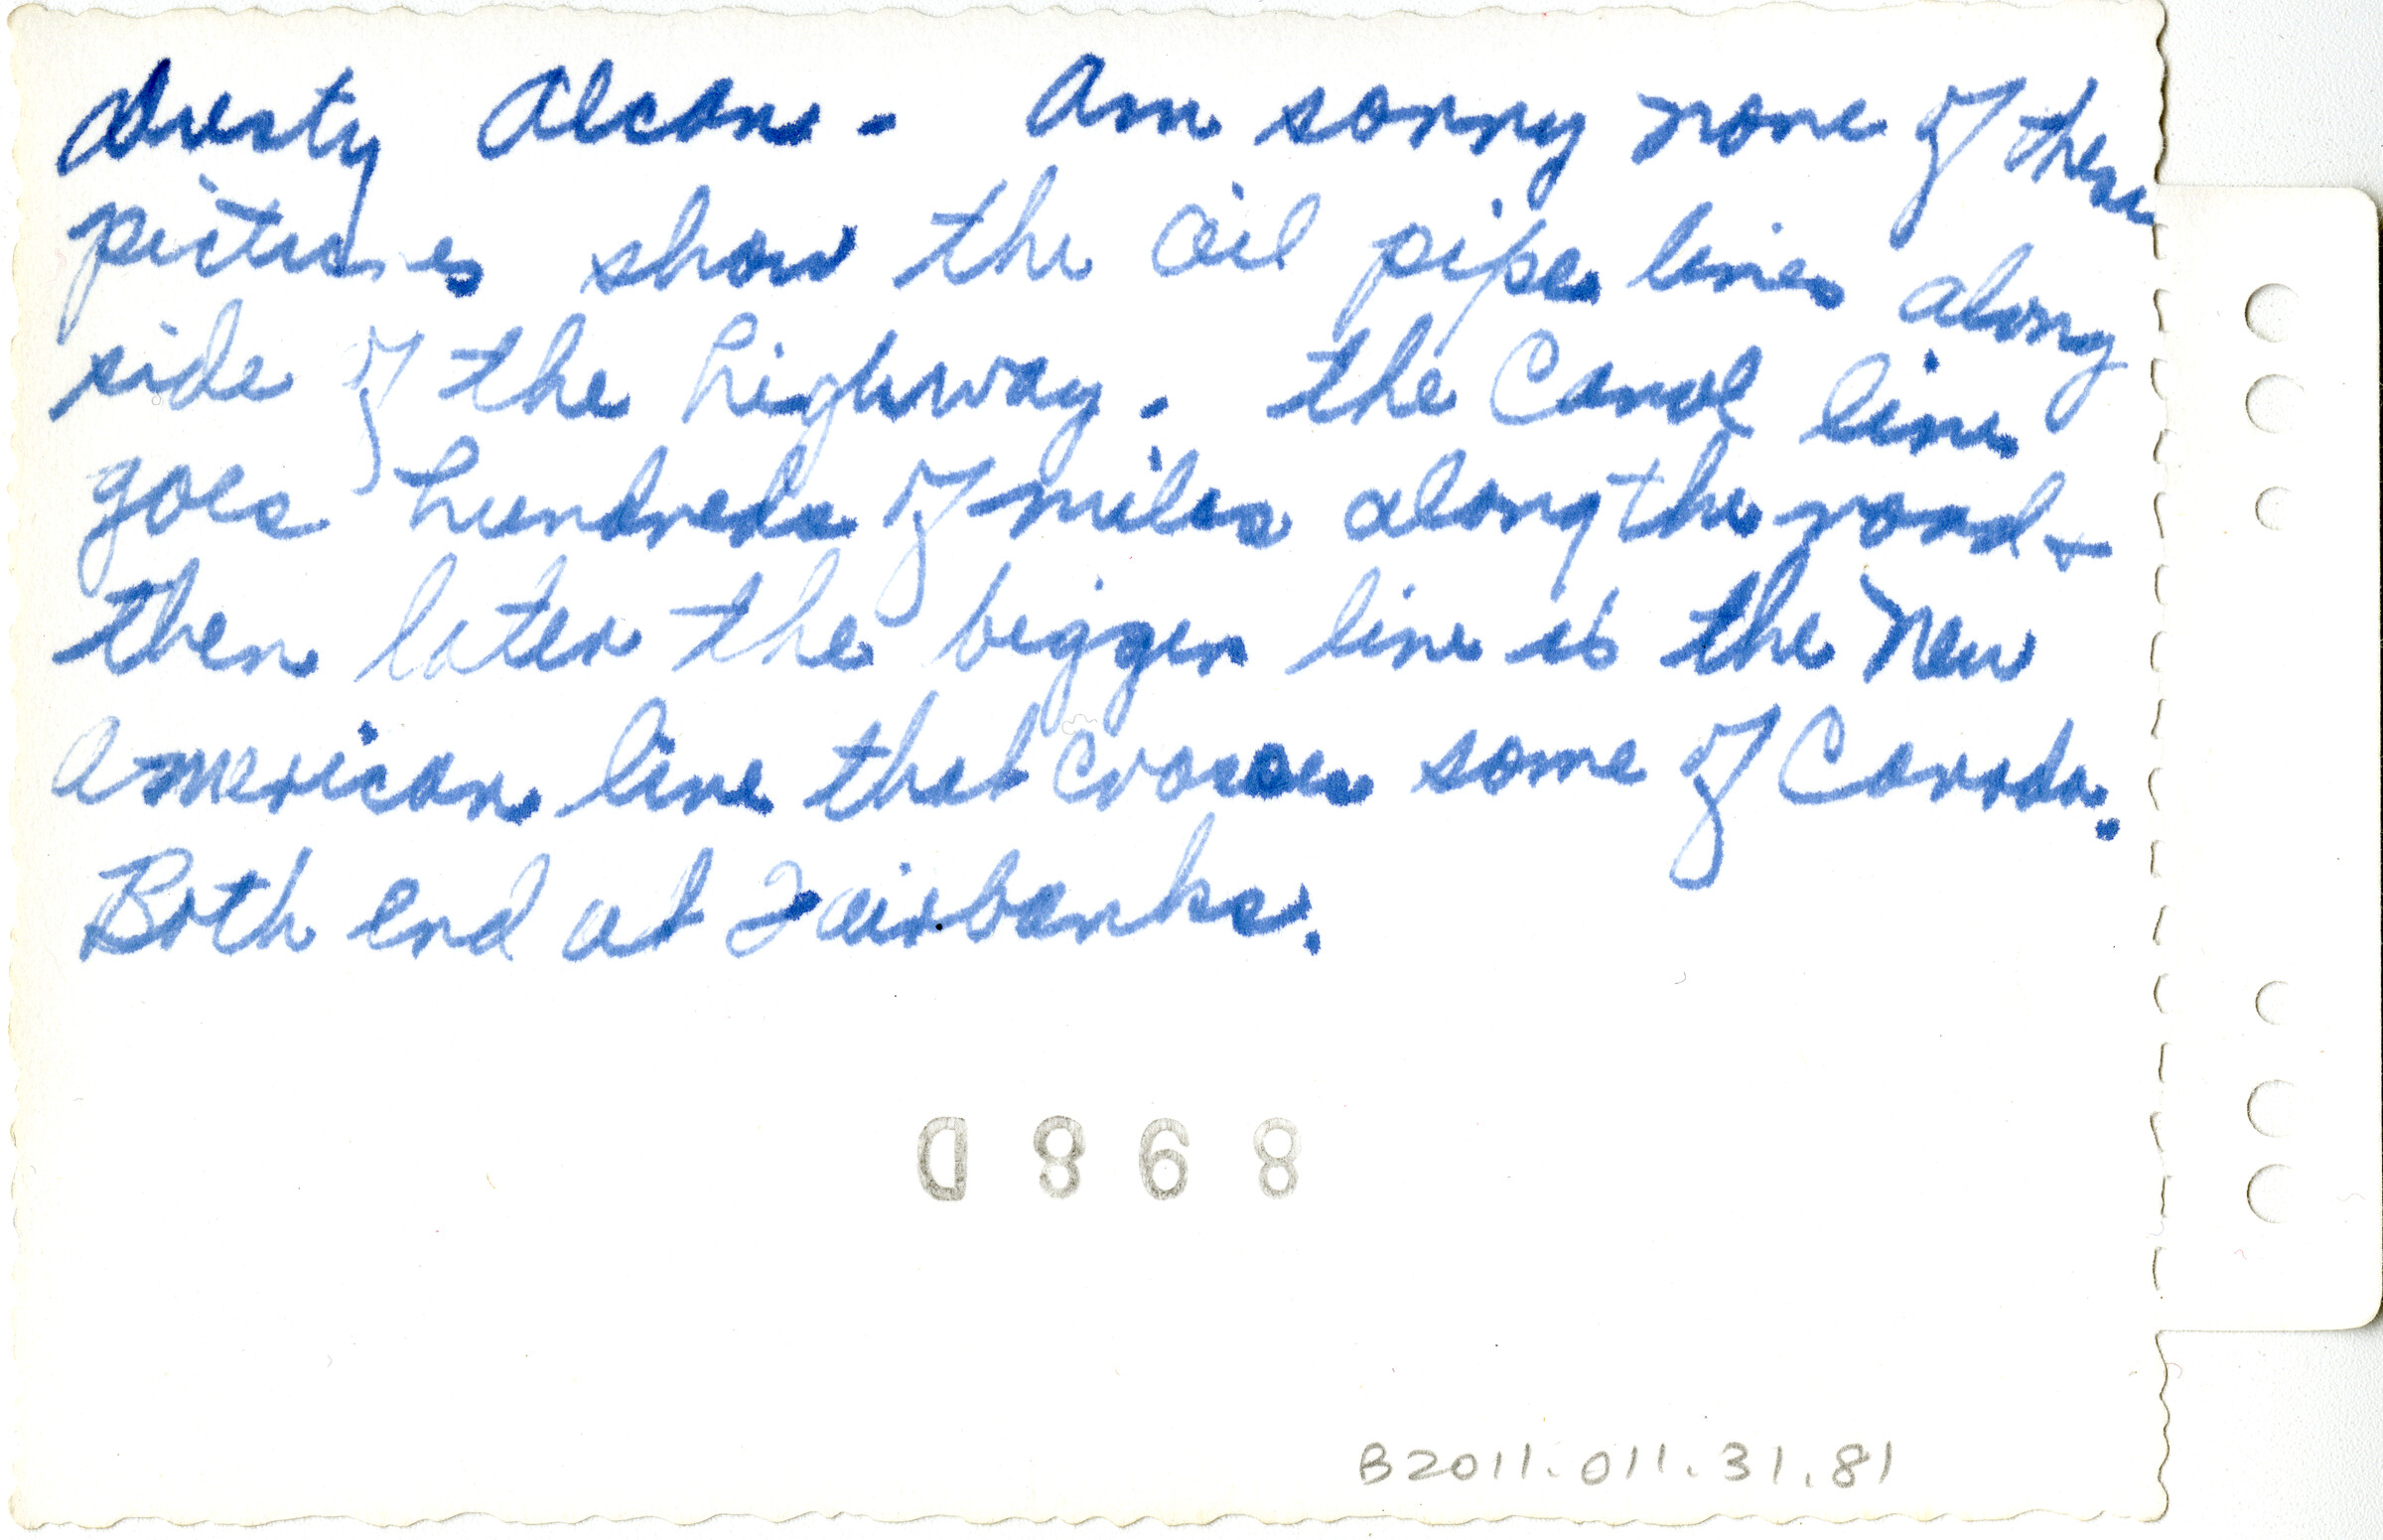 dusty Alcan - Am sorry none of these
pictures show the oil pipe lines along
side of the highway. the Canol line
goes hundreds of miles along the road -
then later the bigger line is the New
American line that crosses some of Canada.
Both end at Fairbanks.
D898
B2011.011.31.81